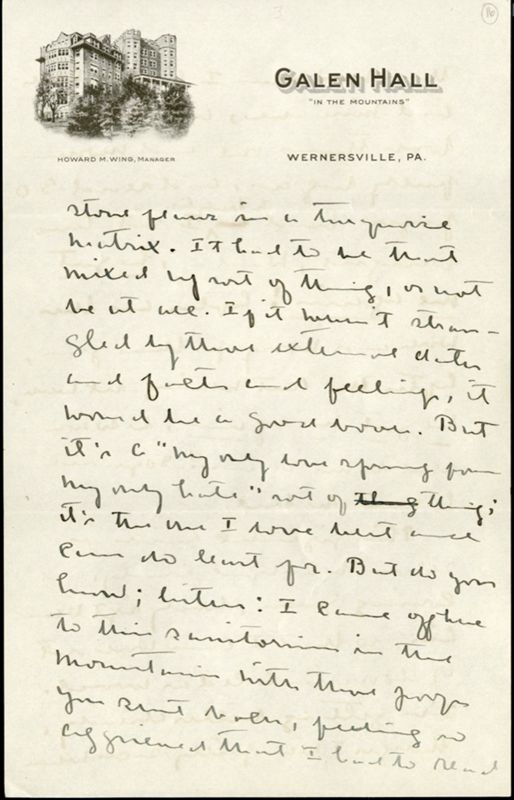 GALEN HALL
"IN THE MOUNTAINS"
HOWARD M. WING, MANAGER
WERNERSVILLE, PA.
stone flaws in a turquoise
matrix. It had to be that
mixed up sort of thing, or not
be at all. If it wasn't stran-
gled by those external dates
and facts and feelings, it
would be a good book. But
it's a "my only love sprung from
my only hate" sort of thing thing;
it's the one I love best and
can do least for. But do you
know; listen: I came up here
to this sanitorium in the
mountains with those proofs
you sent back, feeling so
aggrieved that I had to read